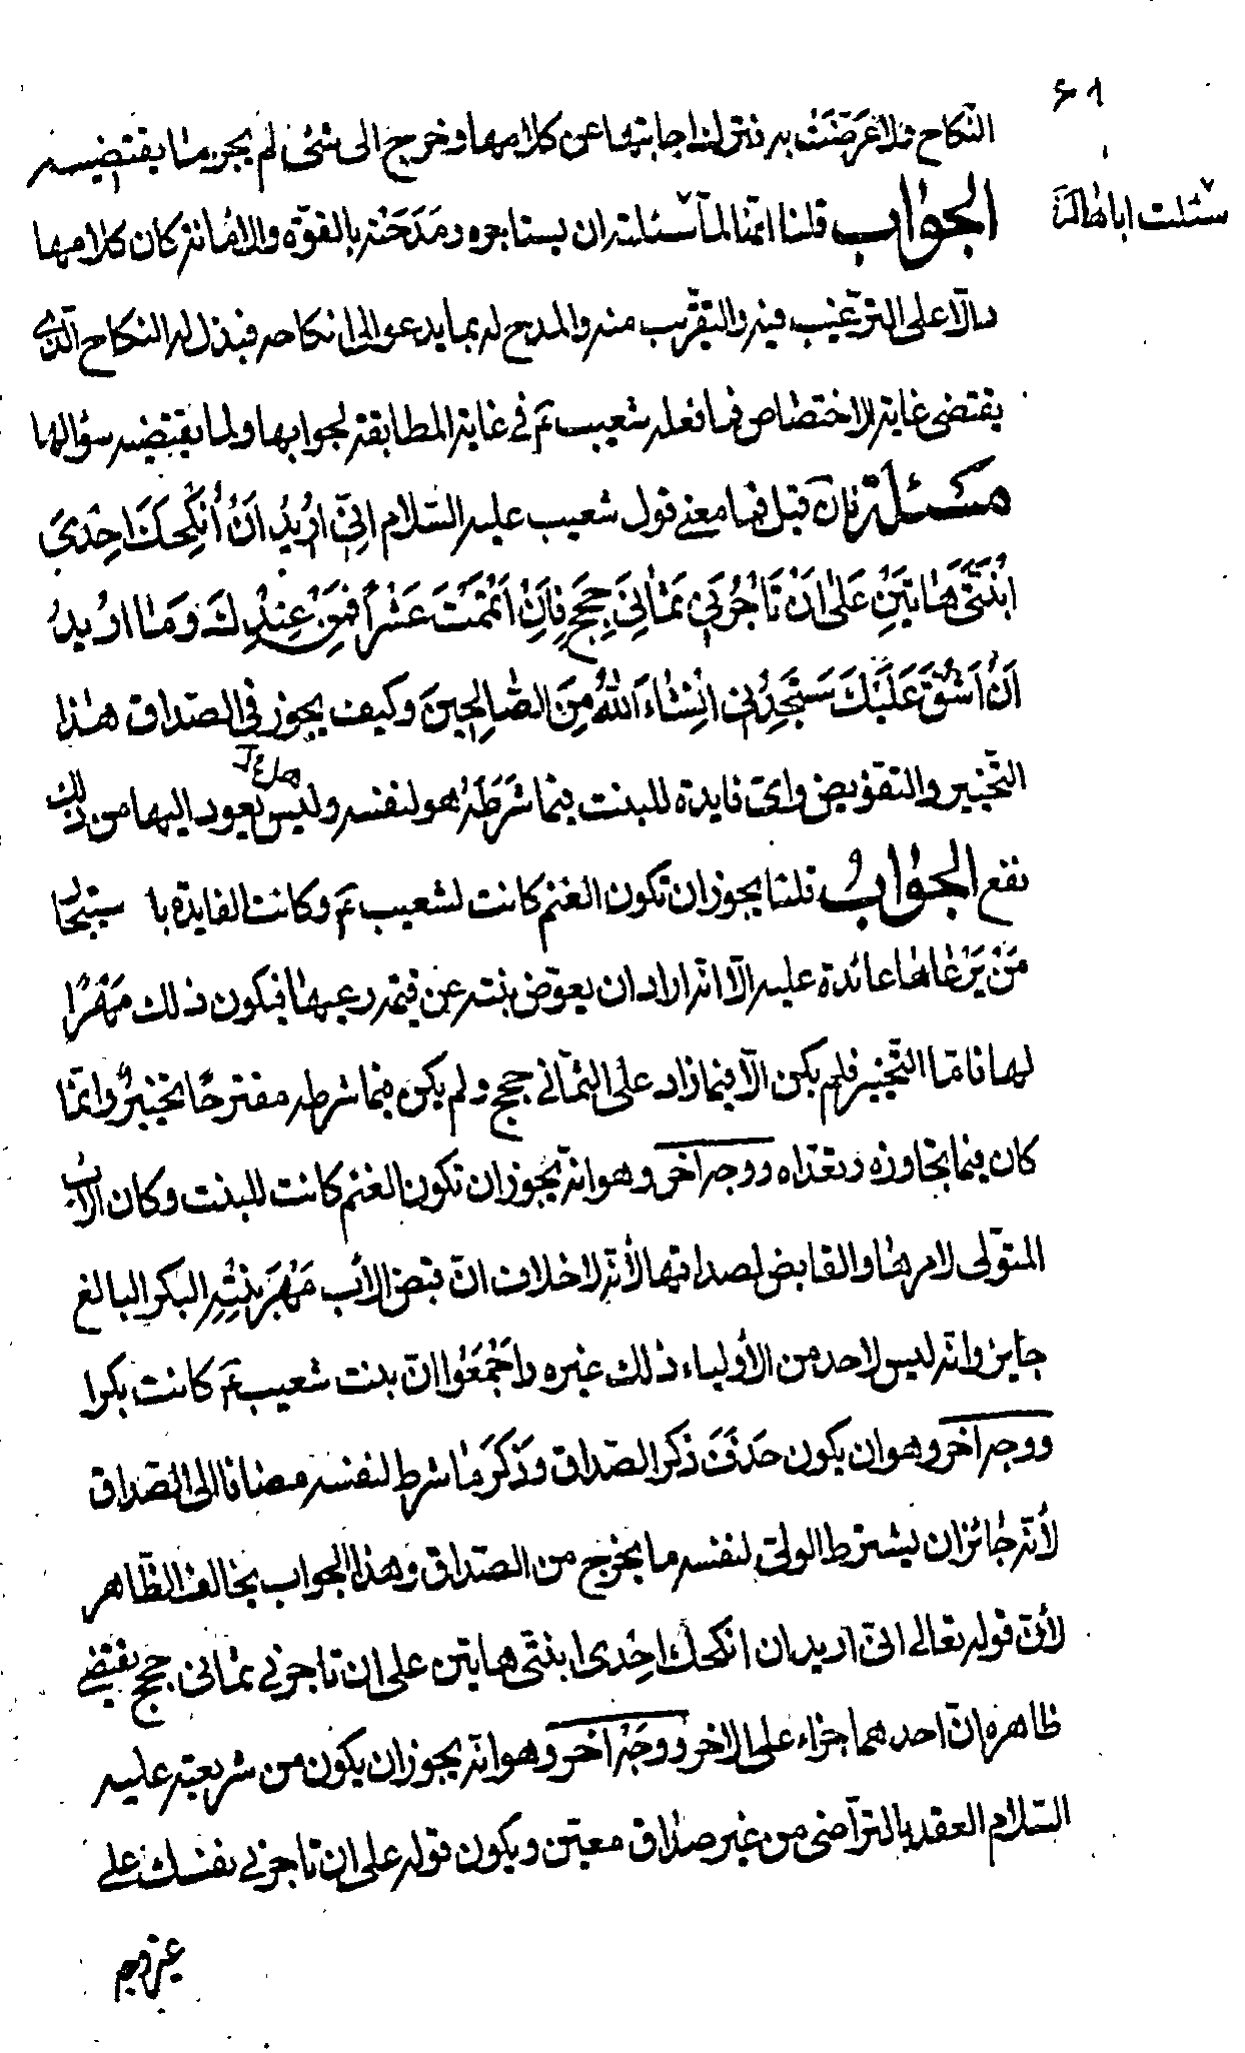 النّكاح ولا عَرَضَتْ به فترك اجابتها عن كلامها وخرج الى شىء لم يجر ما يقتضيه
الجواب قلنا انّها لمّا سئلته ان يستاجره ومَدَحَتْه بالقوّة والامانة كان كلامها
سئلت اباها
دالّا على التّرغيب فيه والتّقرّب منه والمدح له بما يدعو الى انكاحه فبذل له النكاح الّذى
يقتضى غاية الاختصاص فما فعله شعيب ع في غاية المطابقة لجوابها ولما يقتضيه سؤالها
مسئلة فان قيل فما معنى قول شعيب عليه السّلام اِنّى اُرِيدُ اَنْ اُنْكِحَكَ اِحْدَى
ابْنَتَىَّ هَاتَيْنِ عَلٰى اَنْ تَاْجُرَنِى ثَمَانِىَ حِجَجٍ فَاِنْ اَتْمَمْتَ عَشْراً فَمِنْ عِنْدِكَ وَمَا اُرِيدُ
اَنْ اَشُقَّ عَلَيْكَ سَتَجِدُنِى اِنْشَاءَ اللّٰهُ مِنَ الصَّالِحِينَ وكيف يجوز فى الصّداق هذا
التّخيير والتفويض واىّ فايدة للبنت فيما شَرَطَهُ هو لنفسه وليس يعود اليها من ذلك
نفع الجواب قلنا يجوز ان تكون الغنم كانت لشعيب ع وكانت الفايدة با ستيجار
مَنْ يَرْعَاهَا عائدة عليه الّا انّه اراد ان يعوّض بنته عن قيمة رعيها فيكون ذلك مَهْرًا
لها فامّا التّخيير فلم يكن الّا فيما زاد على الثّمانى حجج ولم يكن فيما شرطه مقترحًا تخييرٌ وانّما
كان فيما تجاوزه وتعدّاه ووجه آخر وهو انّه يجوز ان تكون الغنم كانت للبنت وكان الاب
المتولّى لامرها والقابض لصداقها لأنّه لا خلاف انّ قبض الأب مَهْرَ بِنْتِهِ البكر البالغ
جايز وانّه ليس لاحد من الأولياء ذلك غيره واَجْمَعُوا انّ بنت شعيب ع كانت بكرا
ووجه آخر وهو ان يكون حَذَفَ ذكر الصّداق وَذَكَرَ مَا شرط لنفسه مضافا الى الصّداق
لأنّه جائز ان يشترط الولىّ لنفسه ما يخرج من الصّداق وهذا الجواب يخالف الظّاهر
لأنّ قوله تعالى انّى اريد ان انكحك احدى ابنتىّ هاتين على ان تاجرنى ثمانى حجج يقتضى
ظاهره انّ احدهما جزاء على الاخر ووجه آخر وهو انّه يجوز ان يكون من شريعته عليه
السّلام العقد بالتراضى من غير صداق معيّن ويكون قوله على ان تاجرنى نفسك على